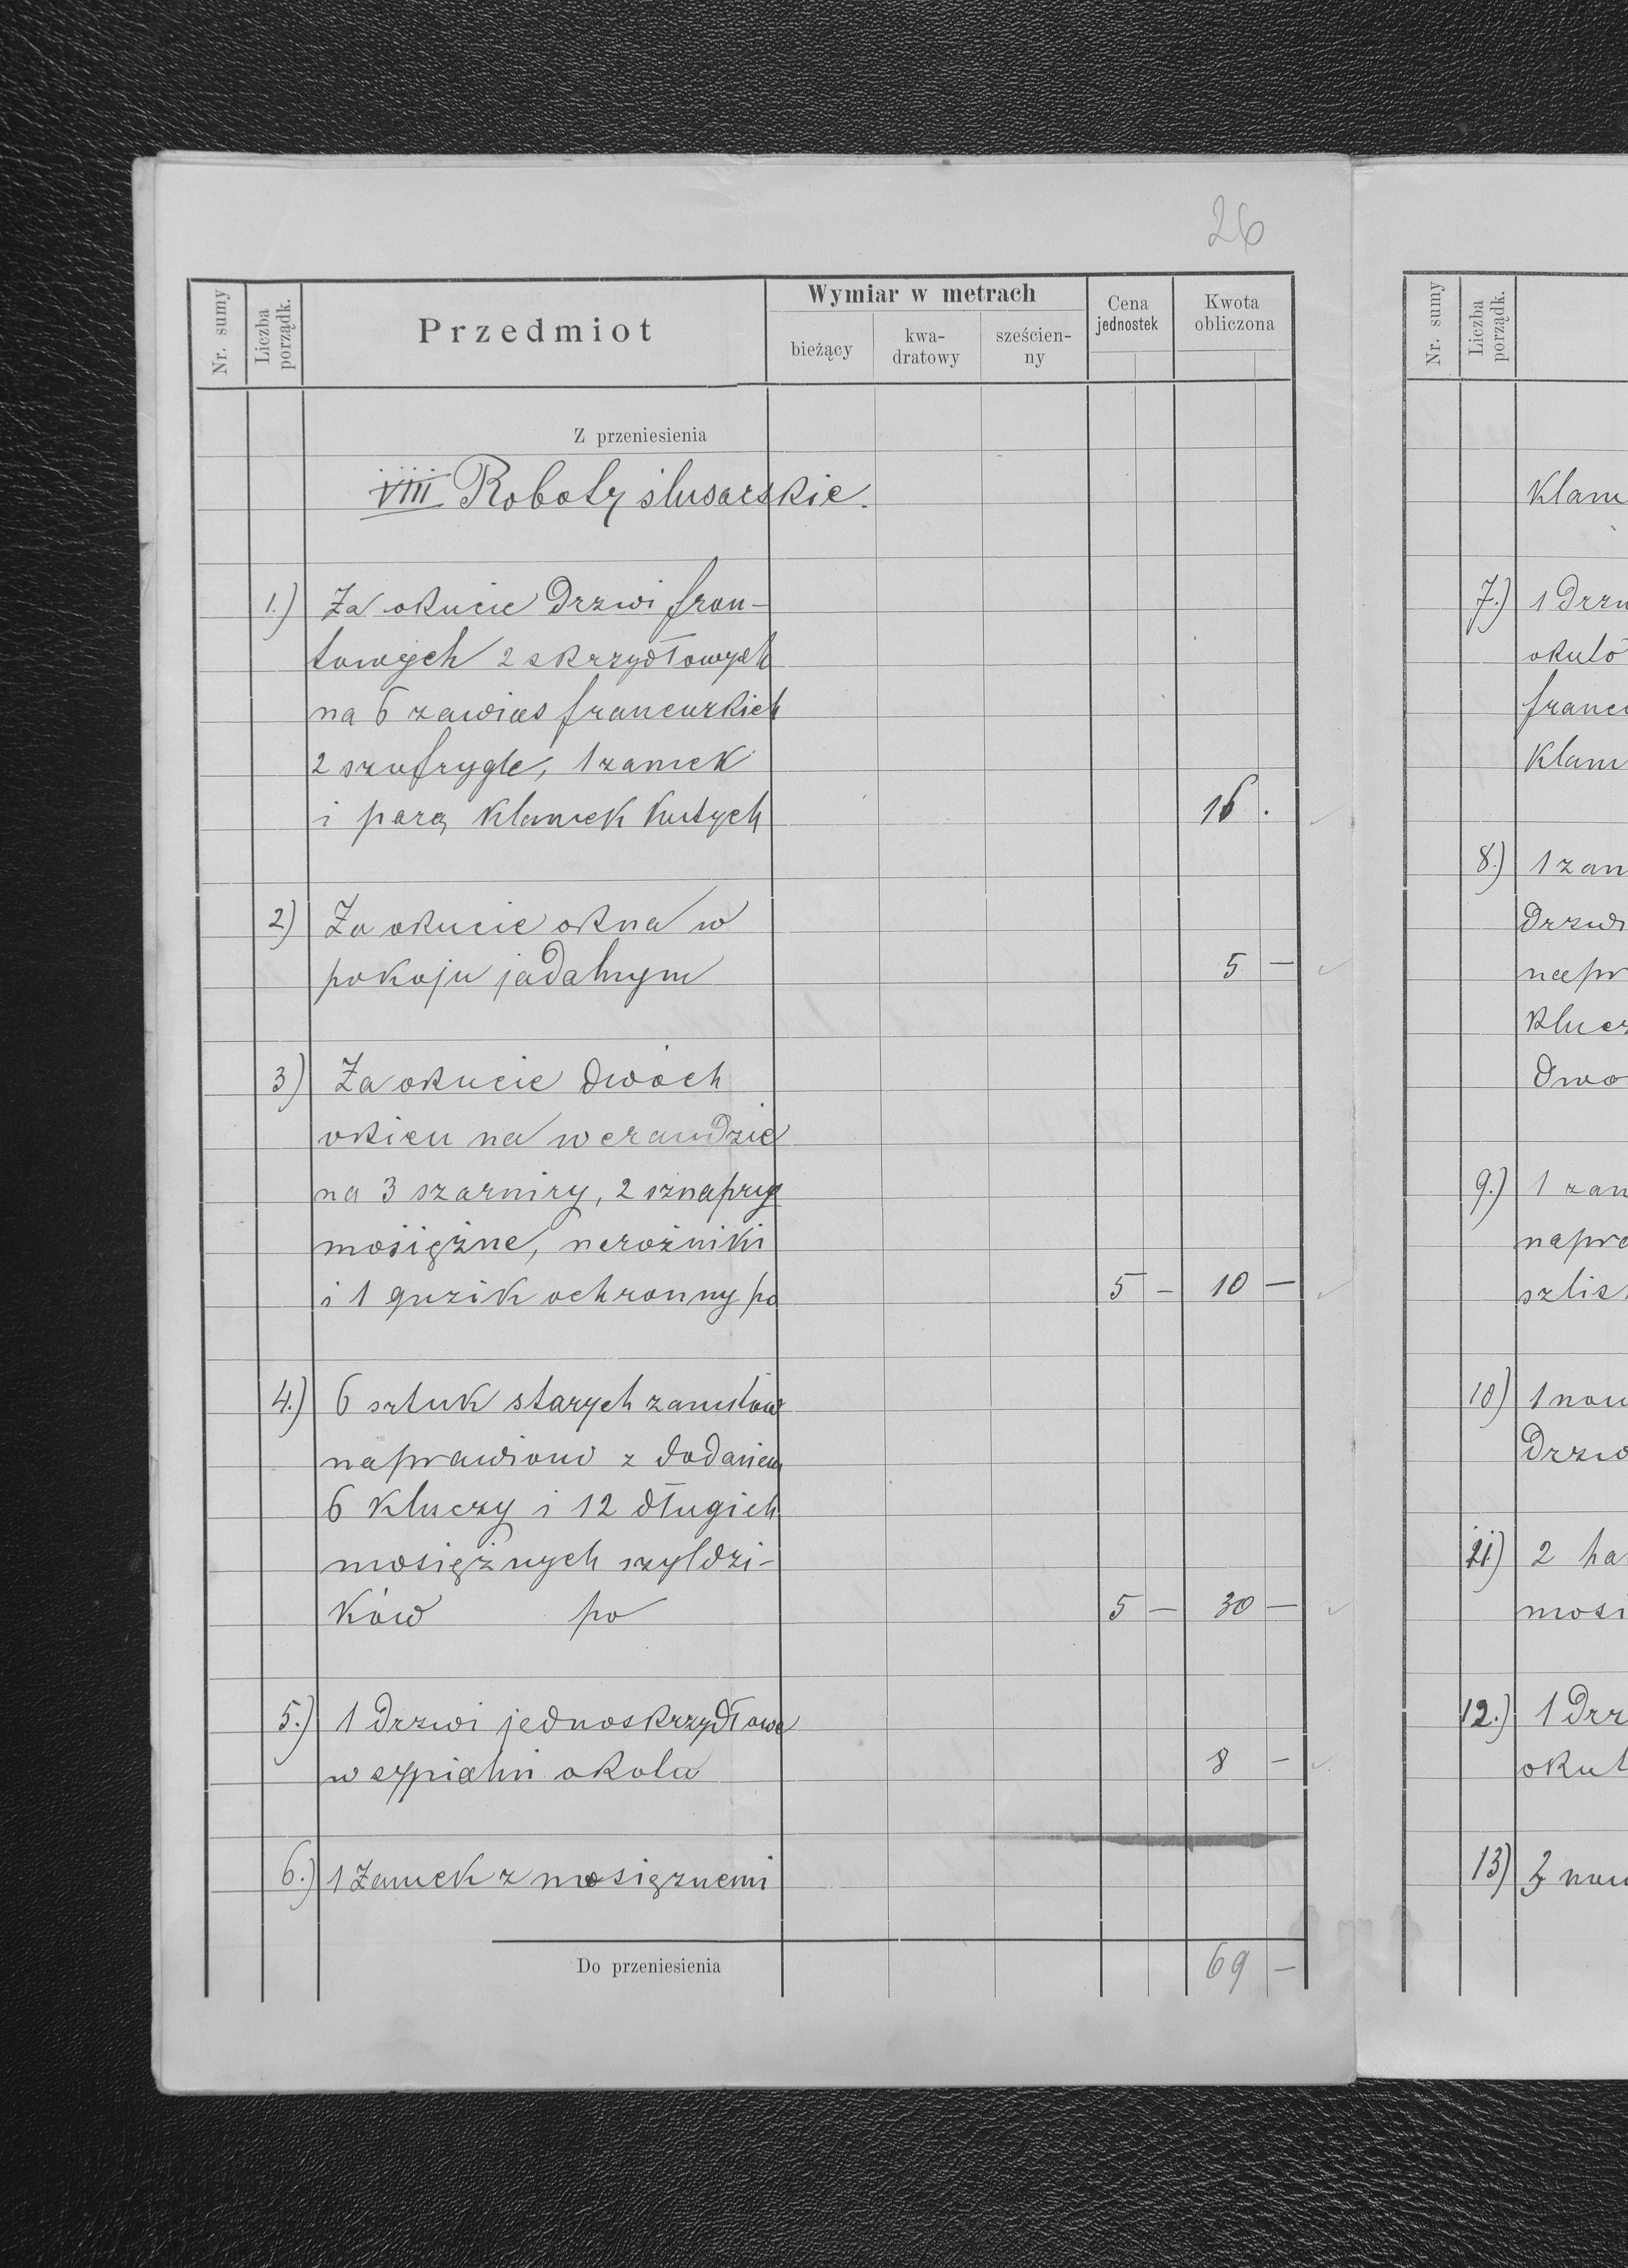 26
Nr. sumy
Liczba porządk.
Przedmiot
Wymiar w metrach
bieżący
kwa-
dratowy
sześcien-
ny
Cena
jednostek
Kwota
obliczona
Z przeniesienia
VIII Roboty ślusarskie.
1.) Za okucie drzwi fron-
towych 2 skrzydłowych
na 6 zawias francuzkich
2 szufrygle, 1 zamek
i parą klamek kutych 16 .
2) Za okucie okna w
pokoju jadalnym 5 —
3) Za okucie dwóch
okien na werandzie
na 3 szarniry, 2 sznapry
mosiężne, narożniki
i 1 guzik ochronny po 5 — 10 —
4.) 6 sztuk starych zamków
naprawiono z dodaniem
6 kluczy i 12 długich
mosiężnych szyldzi-
ków po 5 — 30 —
5.) 1 drzwi jednoskrzydłowe
w szpiżalni okola 8 —
6.) 1 Zamek z mosiężnemi
Do przeniesienia 69 —
Nr. sumy
Liczba porządk.
klam
7.) 1 drzw
okuto
francu
klam
8.) 1 zam
drzwi
napr
klucz
dwo
9.) 1 zam
napra
szlis
10) 1 now
drzw
11) 2 ha
mosi
12.) 1 drz
okut
13) 3 now